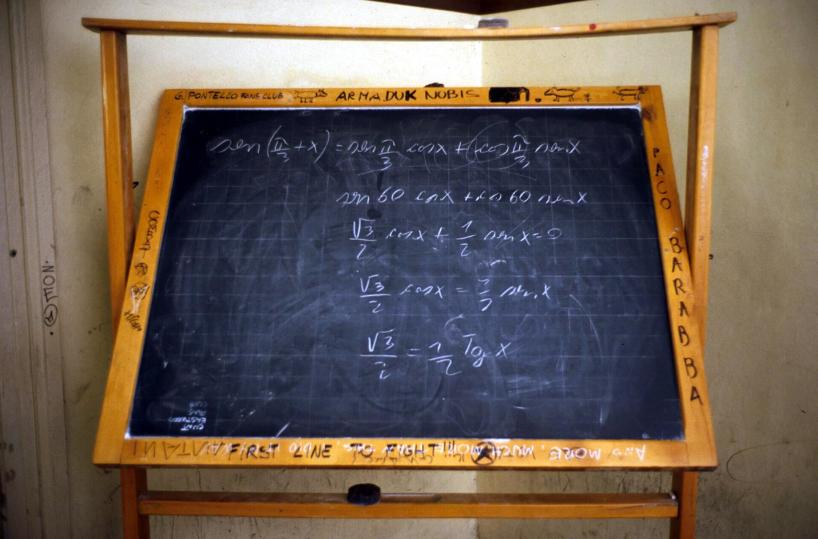 G. PONTELLO FANS CLUB ARMADUK NOBIS
sen(π/3 + x) = sen π/3 cos x + cos π/3 sen x
sen 60 cos x + cos 60 sen x
√3/2 cos x + 1/2 sen x = 0
√3/2 cos x = 1/2 sen x
√3/2 = 1/2 Tg x
PACO BARABBA
CLINT
EASTWOOD
FANS
CLUB
FIRST LINE TO FIGHT!!!
AND MORE, MUCH MORE